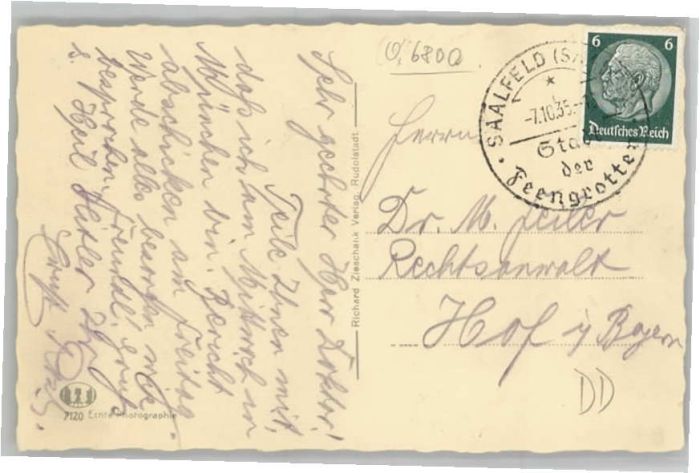 Sehr geehrter Herr Doktor!
Teile Ihnen mit,
daß ich am Mittwoch in
München bin. Bericht
abschicken am Freitag.
Werde alles besorgen wie
besprochen. Freundl. Gruß
u. Heil Hitler Ihr
Ernst
Richard Zieschank Verlag, Rudolstadt
7120 Echte Photographie
0,6800
SAALFELD (SA
-7.10.35.
Stadt
der
Feengrotten
6 6
Deutsches Reich
Herrn
Dr. M. Zeiler
Rechtsanwalt
Hof i/ Bayern
DD